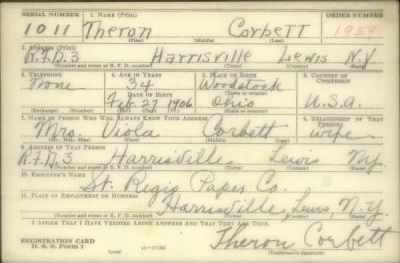 SERIAL NUMBER 1. NAME (Print) ORDER NUMBER
1011 Theron Corbett 1959
(First) (Middle) (Last)
2. ADDRESS (Print)
R.F.D.3 Harrisville Lewis N.Y
(Number and street or R. F. D. number) (Town) (County) (State)
3. TELEPHONE 4. AGE IN YEARS 5. PLACE OF BIRTH 6. COUNTRY OF CITIZENSHIP
None 34 Woodstock
DATE OF BIRTH (Town or county)
Feb. 27 1906 Ohio U.S.A.
(Exchange) (Number) (Mo.) (Day) (Yr.) (State or country)
7. NAME OF PERSON WHO WILL ALWAYS KNOW YOUR ADDRESS 8. RELATIONSHIP OF THAT PERSON
Mrs. Viola Corbett wife
(Mr., Mrs., Miss) (First) (Middle) (Last)
9. ADDRESS OF THAT PERSON
R.F.D.3 Harrisville Lewis N.Y.
(Number and street or R. F. D. number) (Town) (County) (State)
10. EMPLOYER'S NAME
St. Regis Paper Co.
11. PLACE OF EMPLOYMENT OR BUSINESS
Harrisville Lewis, N.Y.
(Number and street or R. F. D. number) (Town) (County) (State)
I AFFIRM THAT I HAVE VERIFIED ABOVE ANSWERS AND THAT THEY ARE TRUE.
REGISTRATION CARD
D. S. S. Form 1 (over) Theron Corbett
(Registrant's signature)